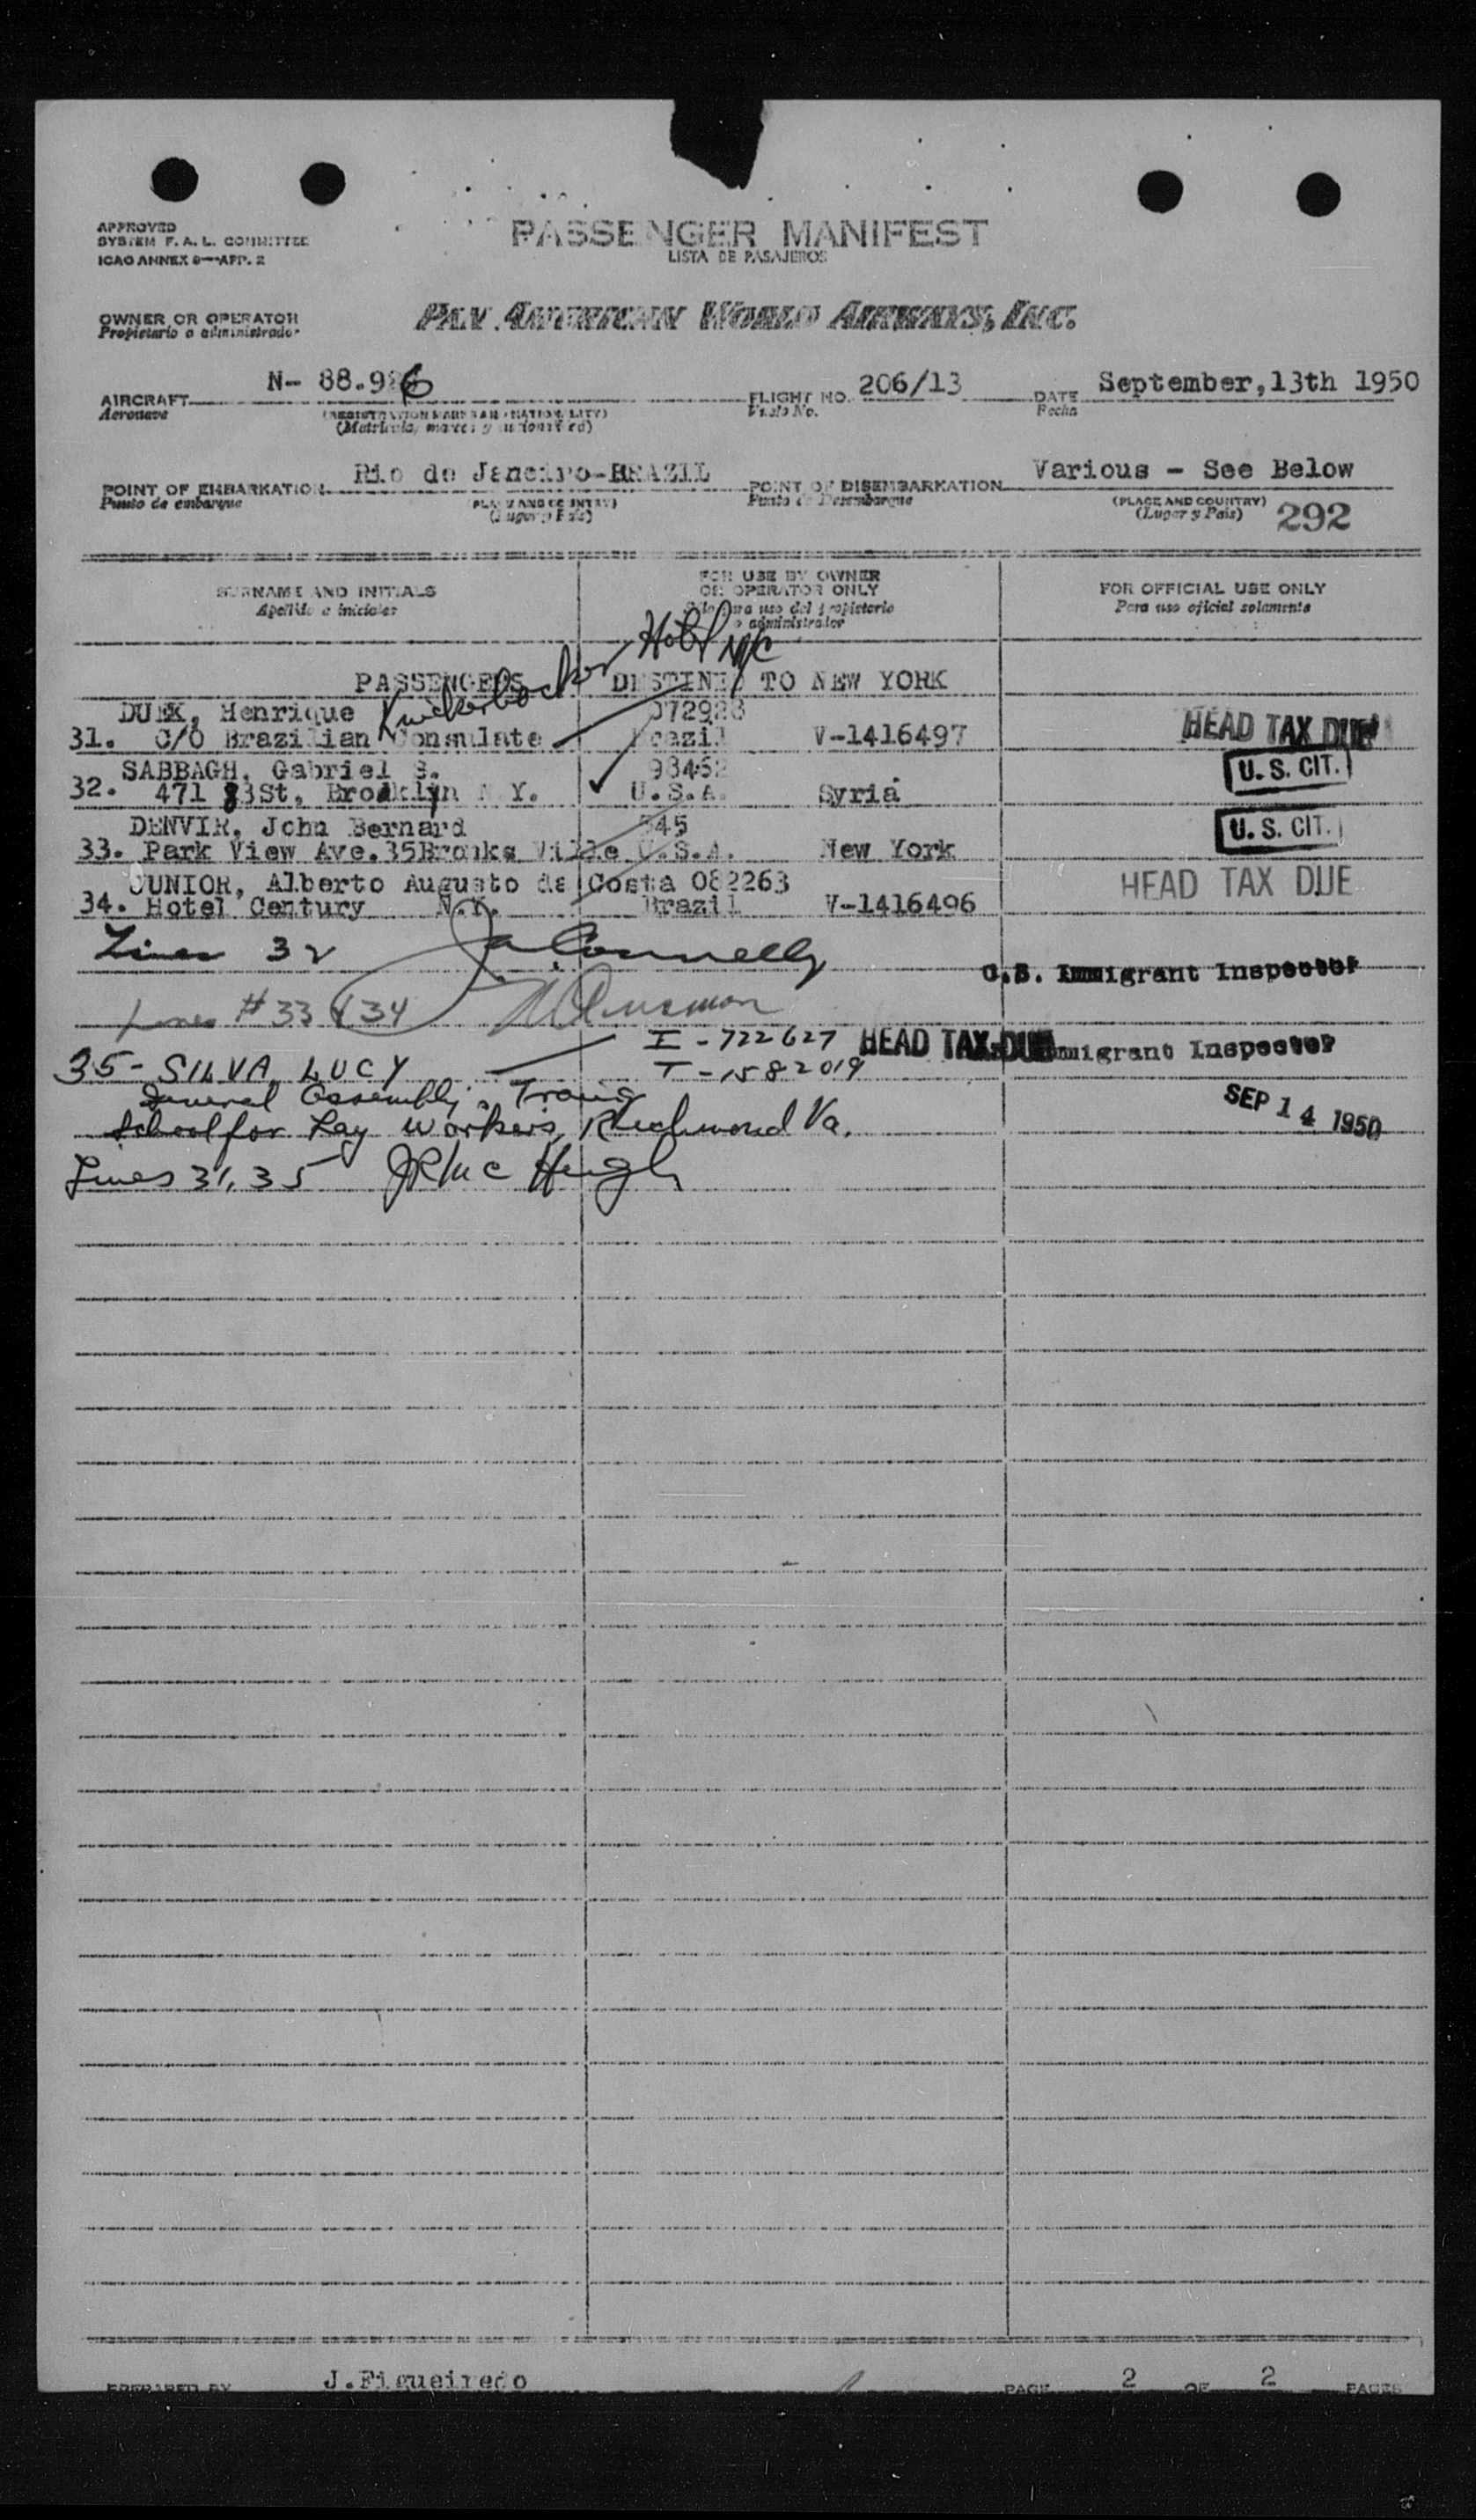 APPROVED
SYSTEM F. A. L. COMMITTEE
ICAO ANNEX 9—APP. 2
PASSENGER MANIFEST
LISTA DE PASAJEROS
OWNER OR OPERATOR
Propietario o administrador
PAN AMERICAN WORLD AIRWAYS, INC.
AIRCRAFT N- 88.9 6 FLIGHT NO. 206/13 DATE September,13th 1950
Aeronave (REGISTRATION MARKS AND NATIONALITY) Vuelo No. Fecha
(Matricula, marcas y nacionalidad)
POINT OF EMBARKATION Rio de Janeiro-BRAZIL POINT OF DISEMBARKATION Various - See Below
Punto de embarque (PLACE AND COUNTRY) Punto de Desembarque (PLACE AND COUNTRY)
(Lugar y País) (Lugar y País) 292
SURNAME AND INITIALS
Apellido e iniciales
FOR USE BY OWNER
OR OPERATOR ONLY
Sólo para uso del propietario
o administrador
FOR OFFICIAL USE ONLY
Para uso oficial solamente
Knickerbocker Hotel NYC
PASSENGERS DESTINED TO NEW YORK
DUEK, Henrique 072928
31. C/O Brazilian Consulate Brazil V-1416497 HEAD TAX DUE
SABBAGH, Gabriel S. 98462
32. 471 83St, Brooklyn N.Y. U.S.A. Syria U. S. CIT.
DENVIR, John Bernard 345
33. Park View Ave.35Bronks Ville U.S.A. New York U. S. CIT.
JUNIOR, Alberto Augusto da Costa 082263
34. Hotel Century N.Y. Brazil V-1416496 HEAD TAX DUE
Lines 32 Connelly U.S. Immigrant Inspector
Lines #33 & 34
I - 722627 HEAD TAX DUE Immigrant Inspector
35- SILVA, LUCY T - 1582019
General Assembly's Traing SEP 14 1950
School for Lay Workers, Richmond Va.
Lines 31, 35 JR McHugh
PREPARED BY J.Figueiredo PAGE 2 OF 2 PAGES